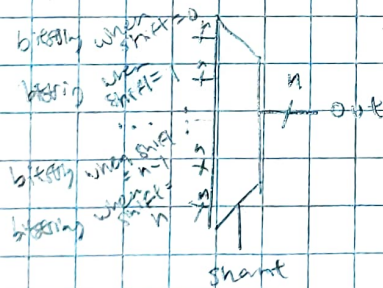 bitstring when shift=0 n
bitstring when shift=1 n
... :
bitstring when shift = n-1 n
bitstring when shift= n n
n out
shamt